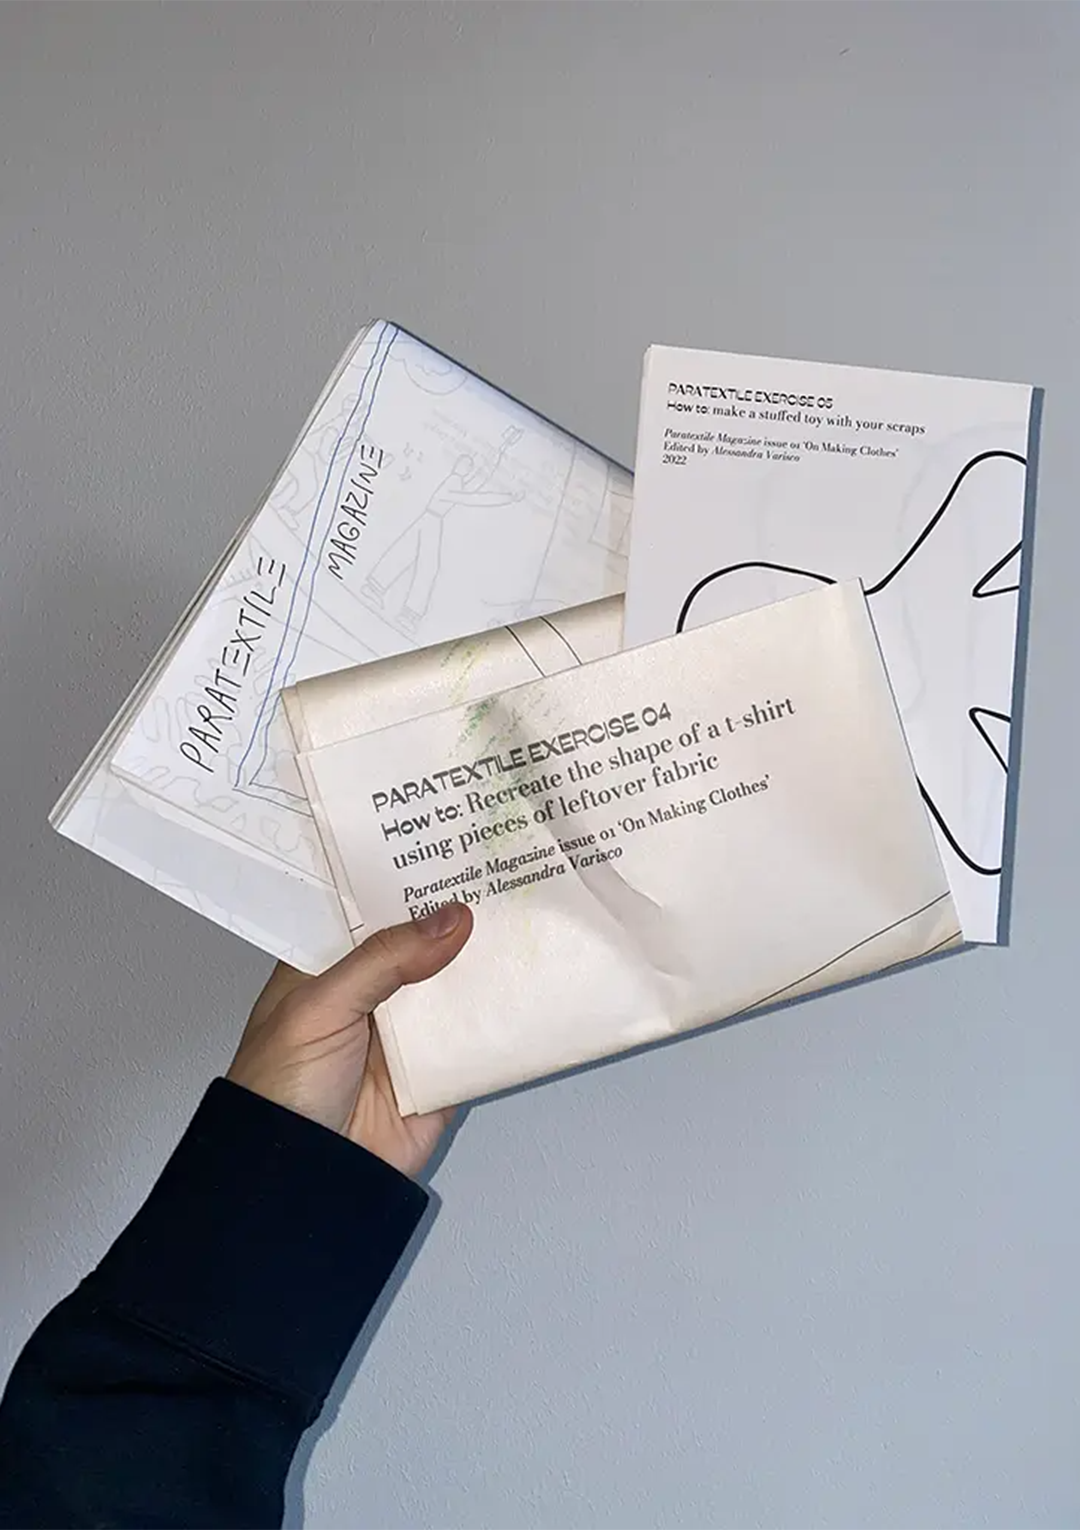 PARATEXTILE
MAGAZINE
PARATEXTILE EXERCISE 05
How to: make a stuffed toy with your scraps
Paratextile Magazine issue 01 'On Making Clothes'
Edited by Alessandra Varisco
2022
PARATEXTILE EXERCISE 04
How to: Recreate the shape of a t-shirt
using pieces of leftover fabric
Paratextile Magazine issue 01 'On Making Clothes'
Edited by Alessandra Varisco